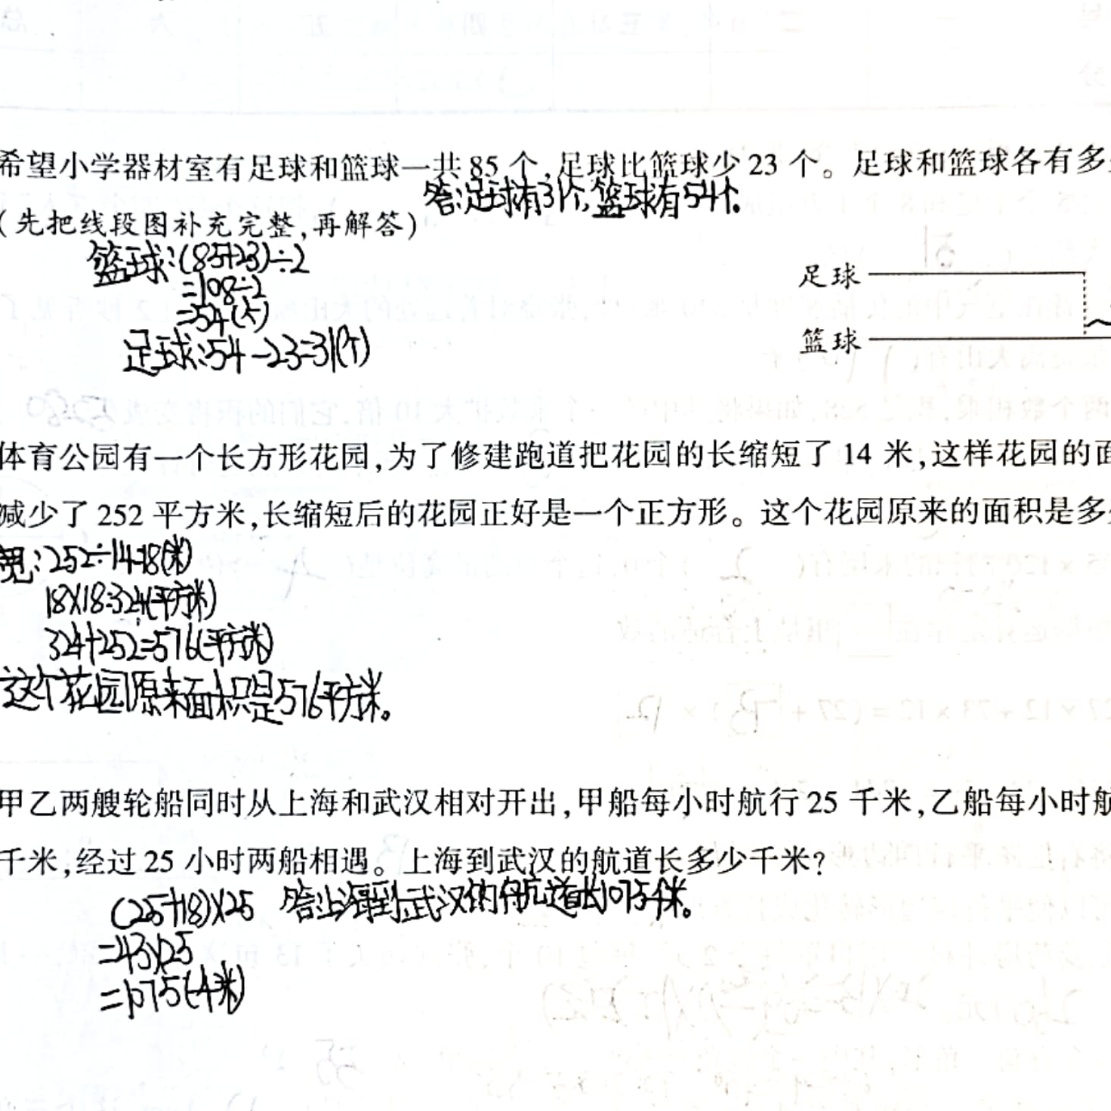 希望小学器材室有足球和篮球一共85个,足球比篮球少23个。足球和篮球各有多
答:足球有31个,篮球有54个.
(先把线段图补充完整,再解答)
篮球:(85+23)÷2
=108÷2
=54(个)
足球:54-23=31(个)
足球
篮球
体育公园有一个长方形花园,为了修建跑道把花园的长缩短了14米,这样花园的面
减少了252平方米,长缩短后的花园正好是一个正方形。这个花园原来的面积是多
宽:252÷14=18(米)
18×18=324(平方米)
324+252=576(平方米)
这个花园原来面积是576平方米。
甲乙两艘轮船同时从上海和武汉相对开出,甲船每小时航行25千米,乙船每小时航
千米,经过25小时两船相遇。上海到武汉的航道长多少千米?
(25+18)×25 答:上海到武汉的航道长1075千米。
=43×25
=1075(千米)